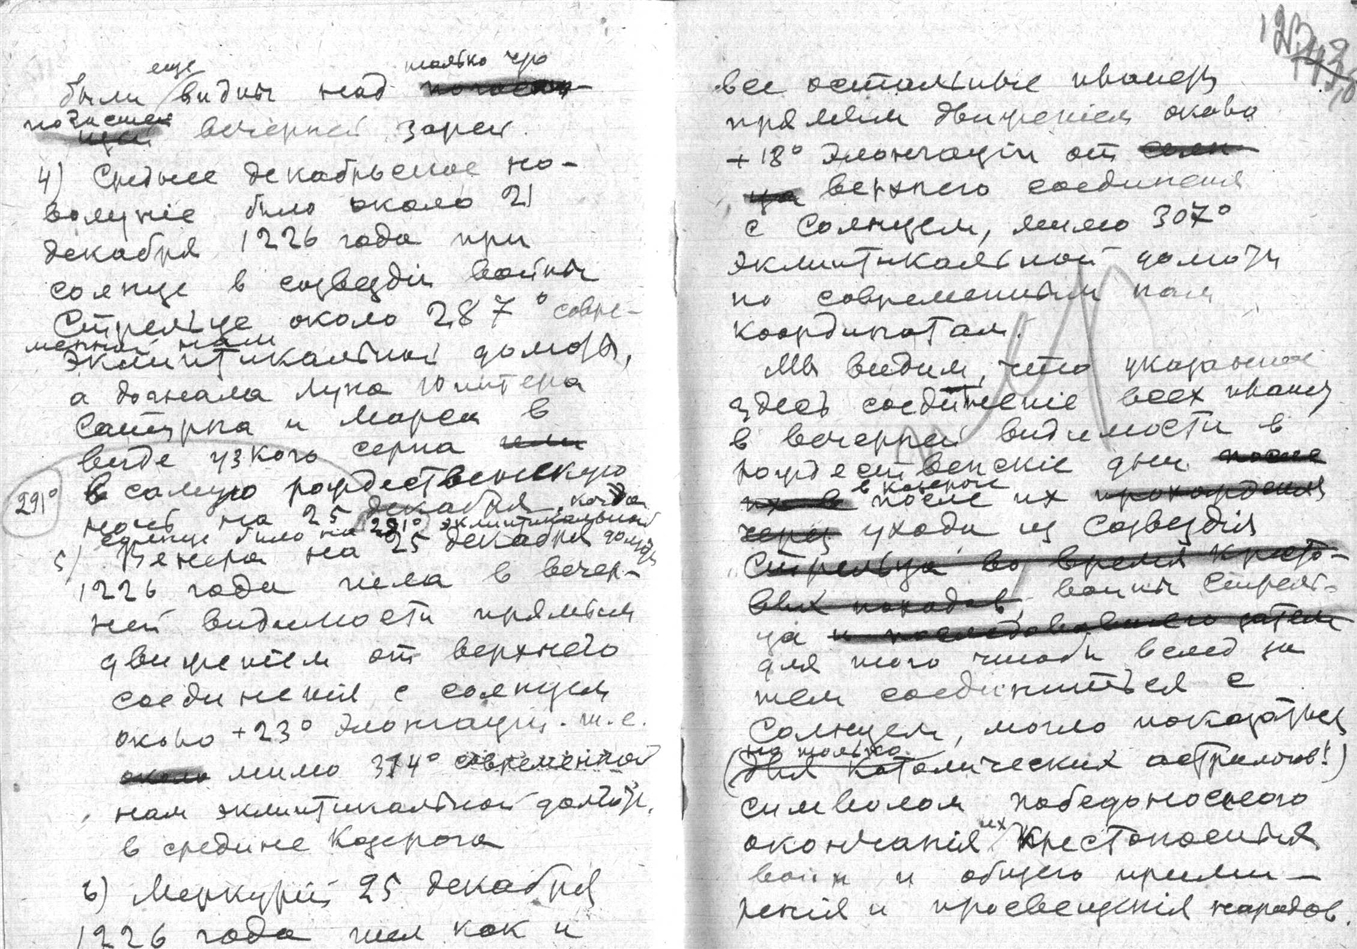 еще только что
были видны над
погасшей вечерней зарей.
4) Среднее декабрьское но-
волуніе было около 21
декабря 1226 года при
солнце в созвездіи войны
Стрельце около 287° совре-
менной нам
эклиптикальной долготы,
а догнала Луна Юпитера
Сатурна и Марса в
виде узкого серпа
в самую рождественскую
291°
ночь на 25 декабря, когда
солнце было на 291° эклиптикальной
долготы
5) Венера на 25 декабря
1226 года шла в вечер-
ней видимости прямым
движеніем от верхнего
соединенія с солнцем
около +23° элонгаціи. т.е.
около мимо 314° современной
нам эклиптикальной долготы,
в средине Козерога
6) Меркурій 25 декабря
1226 года шел как и
123
все остальные планеты
прямым движеніем около
+18° элонгаціи от
верхнего соединенія
с Солнцем, мимо 307°
эклиптикальной долготы
по современным нам
координатам.
Мы видим, что указанное
здесь соединеніе всех планет
в вечерней видимости в
рождественскіе дни после
в Козероге
после их прохожденія
через ухода из Созвездія
Стрельца во время Кресто-
вых походов, войны Стрель-
ца и последовавшего затем
для того чтобы вслед за
тем соединиться с
Солнцем, могло показаться
не только
(для католических астрологов!)
символом победоносного
окончанія их Крестоносных
войн и общего прими-
ренія и просвещенія народов.